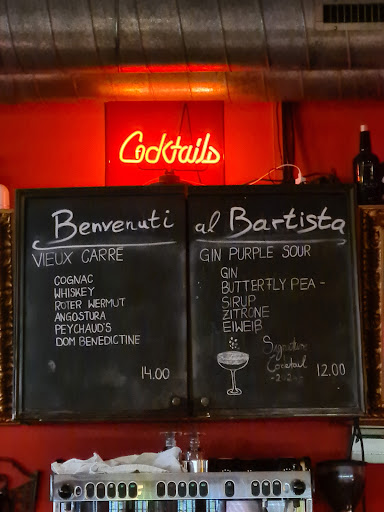 Cocktails
Benvenuti al Bartista
VIEUX CARRÉ
COGNAC
WHISKEY
ROTER WERMUT
ANGOSTURA
PEYCHAUD'S
DOM BENEDICTINE
14.00
GIN PURPLE SOUR
GIN
BUTTERFLY PEA-
SIRUP
ZITRONE
EIWEIß
Signature
Cocktail
12.00